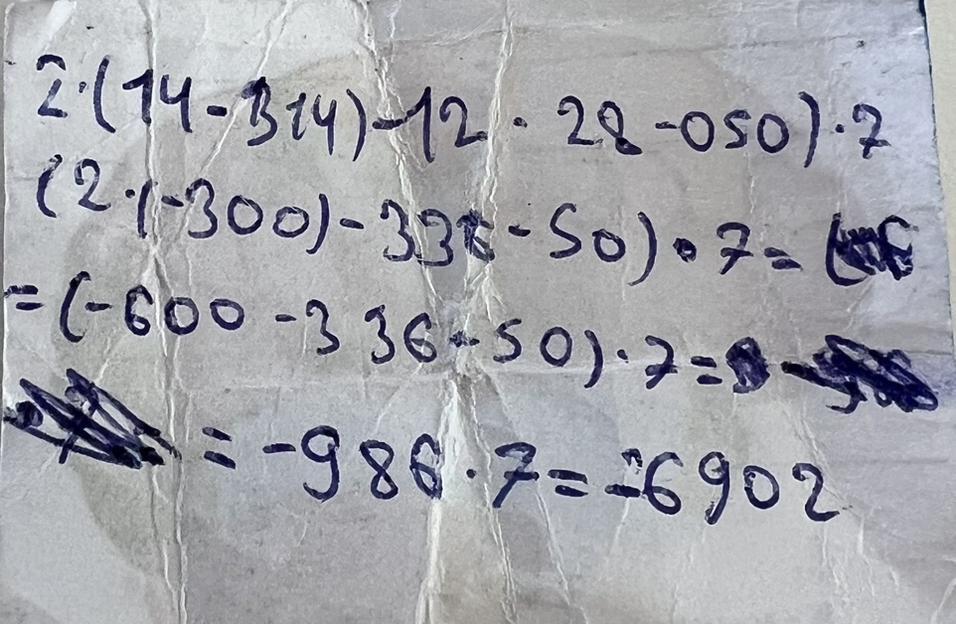 2·(14-314)-12·28-050)·7
(2·(-300)-336-50)·7=(
=(-600-336-50)·7=
=-986·7=-6902